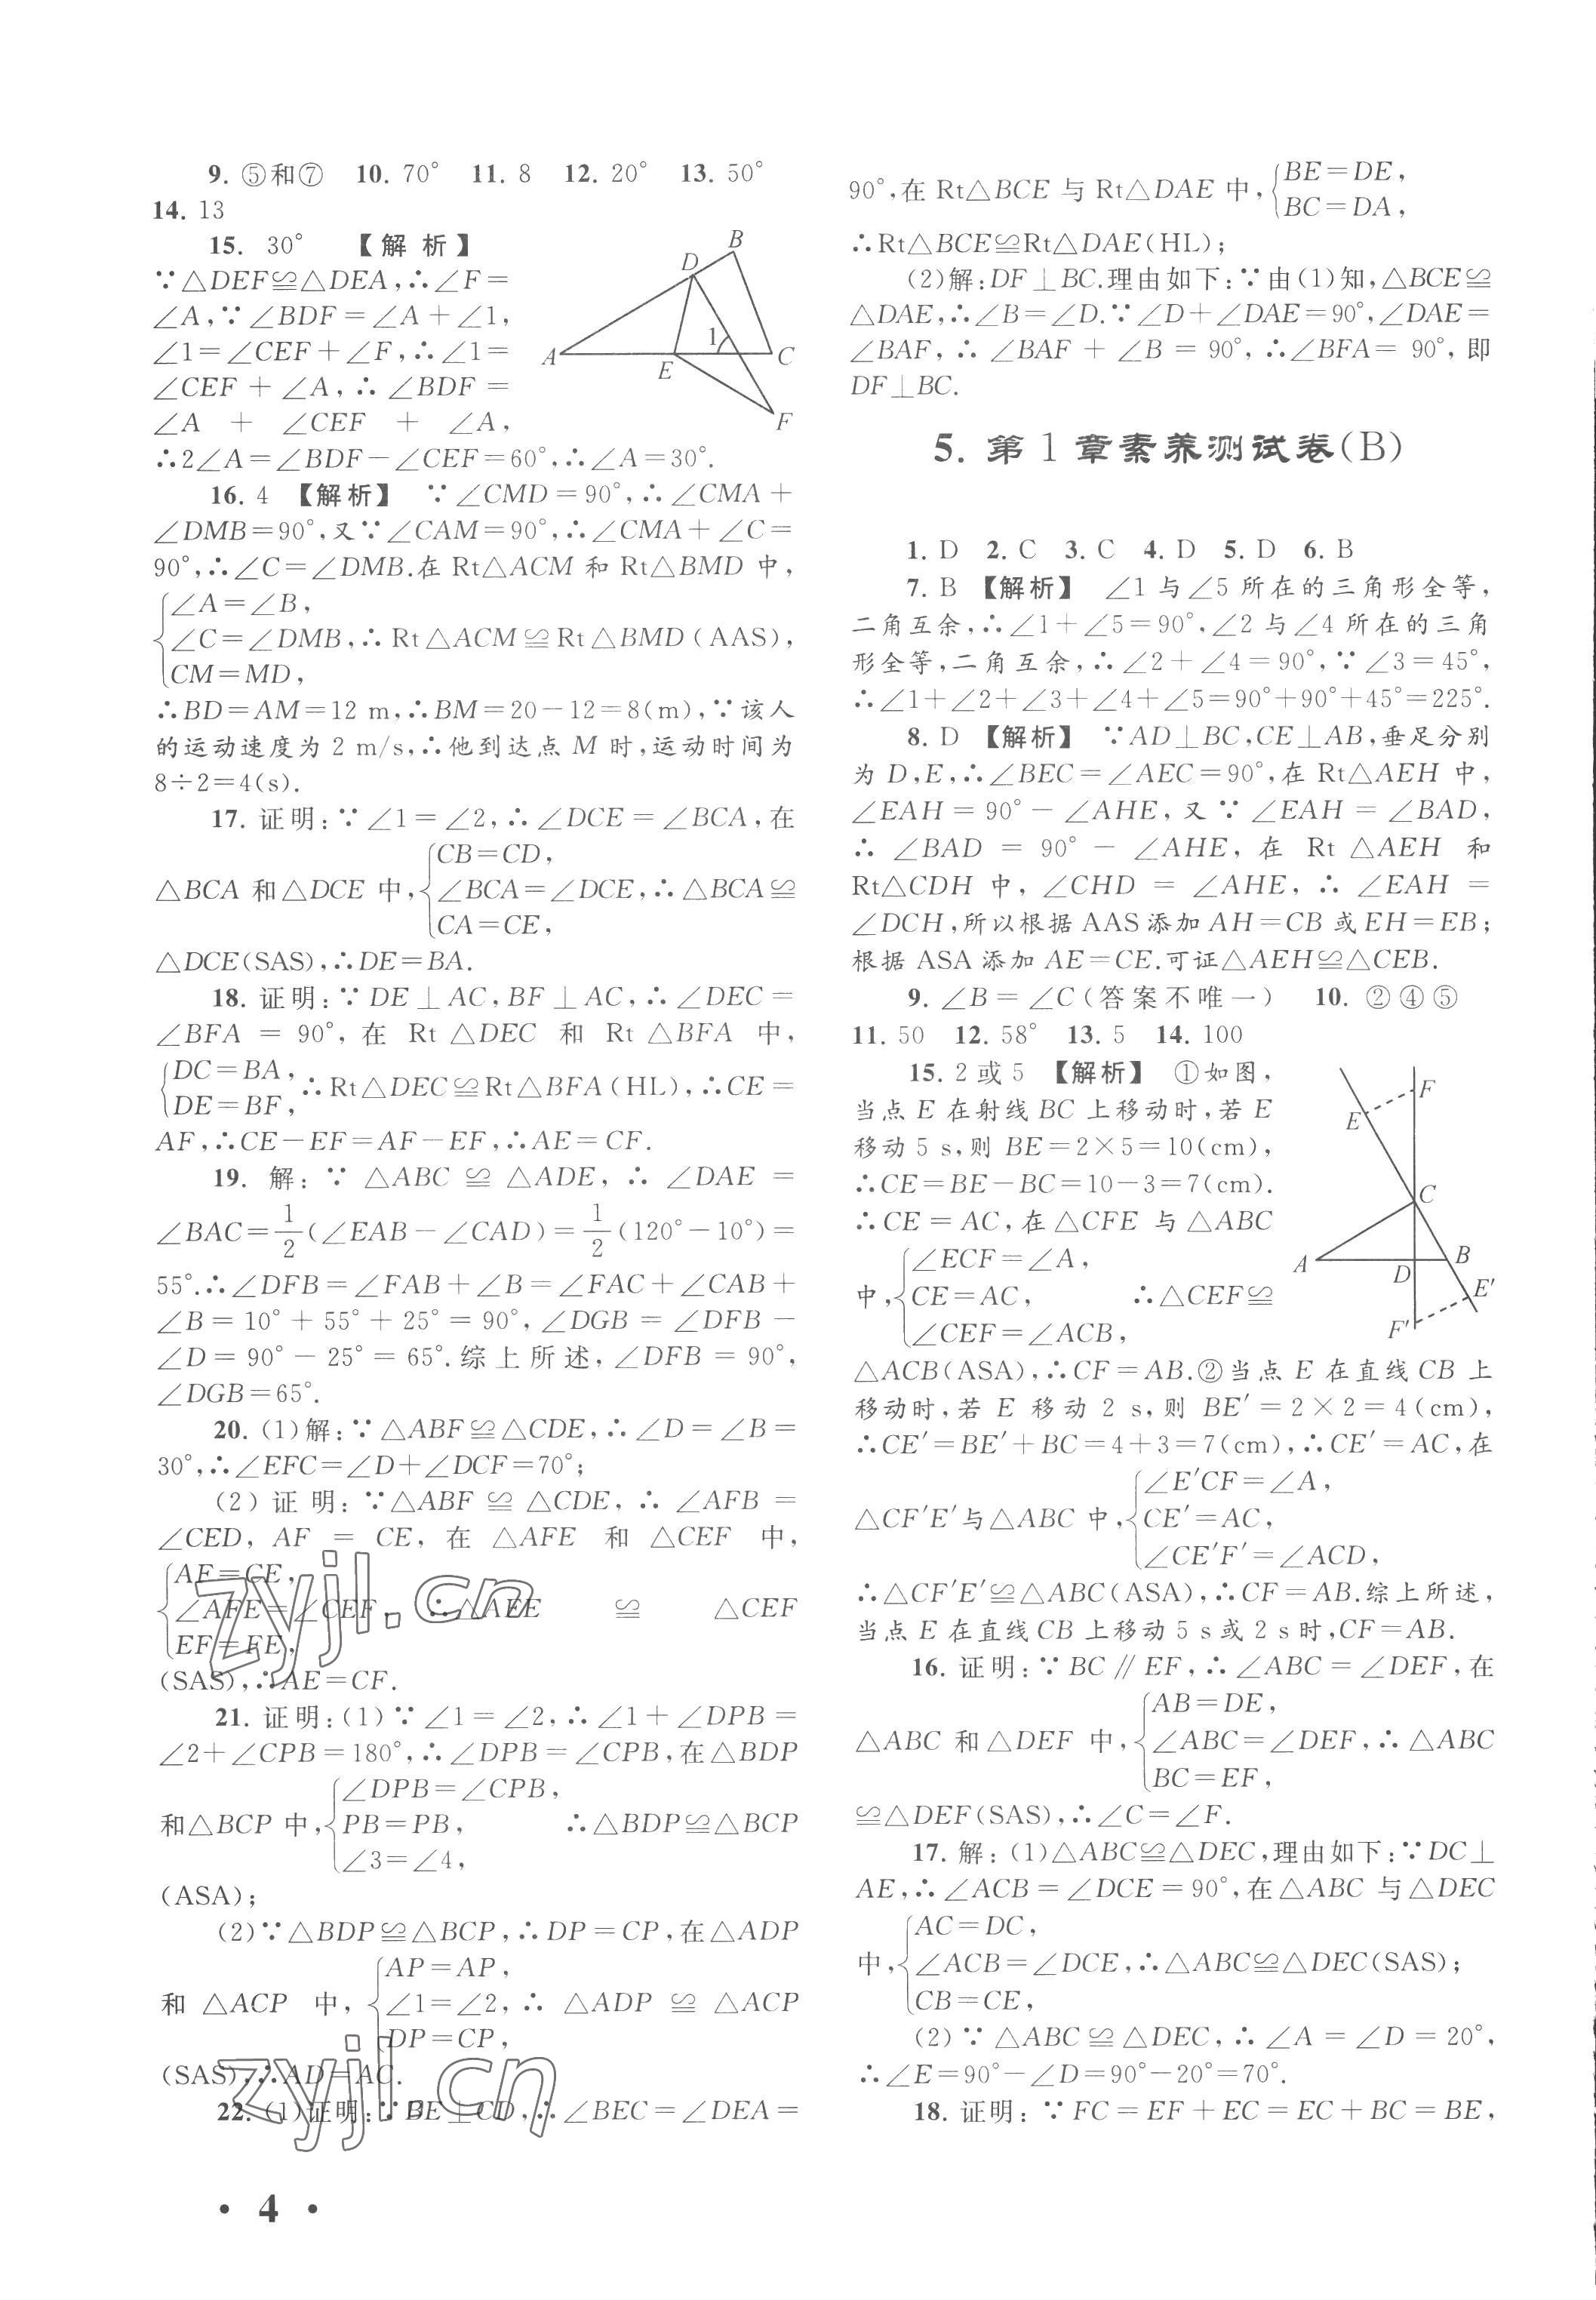 9. ⑤和⑦ 10. 70° 11. 8 12. 20° 13. 50°
14. 13
15. 30° 【解析】
∵△DEF≌△DEA,∴∠F=
∠A,∵∠BDF=∠A+∠1,
∠1=∠CEF+∠F,∴∠1=
∠CEF+∠A,∴∠BDF=
∠A+∠CEF+∠A,
∴2∠A=∠BDF-∠CEF=60°,∴∠A=30°.
B
D
1
A
E
C
F
16. 4 【解析】 ∵∠CMD=90°,∴∠CMA+
∠DMB=90°,又∵∠CAM=90°,∴∠CMA+∠C=
90°,∴∠C=∠DMB.在 Rt△ACM 和 Rt△BMD 中,
∠A=∠B,
∠C=∠DMB,∴Rt△ACM≌Rt△BMD(AAS),
CM=MD,
∴BD=AM=12 m,∴BM=20-12=8(m),∵该人
的运动速度为 2 m/s,∴他到达点 M 时,运动时间为
8÷2=4(s).
17. 证明:∵∠1=∠2,∴∠DCE=∠BCA,在
CB=CD,
△BCA 和△DCE 中,∠BCA=∠DCE,∴△BCA≌
CA=CE,
△DCE(SAS),∴DE=BA.
18. 证明:∵DE⊥AC,BF⊥AC,∴∠DEC=
∠BFA=90°,在 Rt△DEC 和 Rt△BFA 中,
DC=BA,
∴Rt△DEC≌Rt△BFA(HL),∴CE=
DE=BF,
AF,∴CE-EF=AF-EF,∴AE=CF.
19. 解:∵△ABC≌△ADE,∴∠DAE=
∠BAC=1/2(∠EAB-∠CAD)=1/2(120°-10°)=
55°.∴∠DFB=∠FAB+∠B=∠FAC+∠CAB+
∠B=10°+55°+25°=90°,∠DGB=∠DFB-
∠D=90°-25°=65°.综上所述,∠DFB=90°,
∠DGB=65°.
20. (1)解:∵△ABF≌△CDE,∴∠D=∠B=
30°,∴∠EFC=∠D+∠DCF=70°;
(2)证明:∵△ABF≌△CDE,∴∠AFB=
∠CED,AF=CE,在△AFE 和△CEF 中,
AF=CE,
∠AFE=∠CEF,∴△AFE≌△CEF
EF=FE,
(SAS),∴AE=CF.
21. 证明:(1)∵∠1=∠2,∴∠1+∠DPB=
∠2+∠CPB=180°,∴∠DPB=∠CPB,在△BDP
∠DPB=∠CPB,
和△BCP 中,PB=PB,∴△BDP≌△BCP
∠3=∠4,
(ASA);
(2)∵△BDP≌△BCP,∴DP=CP,在△ADP
AP=AP,
和△ACP 中,∠1=∠2,∴△ADP≌△ACP
DP=CP,
(SAS),∴AD=AC.
22. (1)证明:∵BE⊥CD,∴∠BEC=∠DEA=
zyjl.cn
zyjl.cn
· 4 ·
90°,在 Rt△BCE 与 Rt△DAE 中,BE=DE,
BC=DA,
∴Rt△BCE≌Rt△DAE(HL);
(2)解:DF⊥BC.理由如下:∵由(1)知,△BCE≌
△DAE,∴∠B=∠D.∵∠D+∠DAE=90°,∠DAE=
∠BAF,∴∠BAF+∠B=90°,∴∠BFA=90°,即
DF⊥BC.
5. 第 1 章素养测试卷(B)
1. D 2. C 3. C 4. D 5. D 6. B
7. B 【解析】 ∠1 与∠5 所在的三角形全等,
二角互余,∴∠1+∠5=90°,∠2 与∠4 所在的三角
形全等,二角互余,∴∠2+∠4=90°,∵∠3=45°,
∴∠1+∠2+∠3+∠4+∠5=90°+90°+45°=225°.
8. D 【解析】 ∵AD⊥BC,CE⊥AB,垂足分别
为 D,E,∴∠BEC=∠AEC=90°,在 Rt△AEH 中,
∠EAH=90°-∠AHE,又∵∠EAH=∠BAD,
∴∠BAD=90°-∠AHE,在 Rt△AEH 和
Rt△CDH 中,∠CHD=∠AHE,∴∠EAH=
∠DCH,所以根据 AAS 添加 AH=CB 或EH=EB;
根据 ASA 添加 AE=CE.可证△AEH≌△CEB.
9. ∠B=∠C(答案不唯一) 10. ②④⑤
11. 50 12. 58° 13. 5 14. 100
15. 2 或 5 【解析】 ①如图,
当点 E 在射线 BC 上移动时,若 E
移动 5 s,则 BE=2×5=10(cm),
∴CE=BE-BC=10-3=7(cm).
∴CE=AC,在△CFE 与△ABC
∠ECF=∠A,
中,CE=AC,∴△CEF≌
∠CEF=∠ACB,
F
E
C
A
D
B
E′
F′
△ACB(ASA),∴CF=AB.②当点 E 在直线 CB 上
移动时,若 E 移动 2 s,则 BE′=2×2=4(cm),
∴CE′=BE′+BC=4+3=7(cm),∴CE′=AC,在
∠E′CF=∠A,
△CF′E′与△ABC 中,CE′=AC,
∠CE′F′=∠ACD,
∴△CF′E′≌△ABC(ASA),∴CF=AB.综上所述,
当点 E 在直线 CB 上移动 5 s 或 2 s 时,CF=AB.
16. 证明:∵BC∥EF,∴∠ABC=∠DEF,在
AB=DE,
△ABC 和△DEF 中,∠ABC=∠DEF,∴△ABC
BC=EF,
≌△DEF(SAS),∴∠C=∠F.
17. 解:(1)△ABC≌△DEC,理由如下:∵DC⊥
AE,∴∠ACB=∠DCE=90°,在△ABC 与△DEC
AC=DC,
中,∠ACB=∠DCE,∴△ABC≌△DEC(SAS);
CB=CE,
(2)∵△ABC≌△DEC,∴∠A=∠D=20°,
∴∠E=90°-∠D=90°-20°=70°.
18. 证明:∵FC=EF+EC=EC+BC=BE,